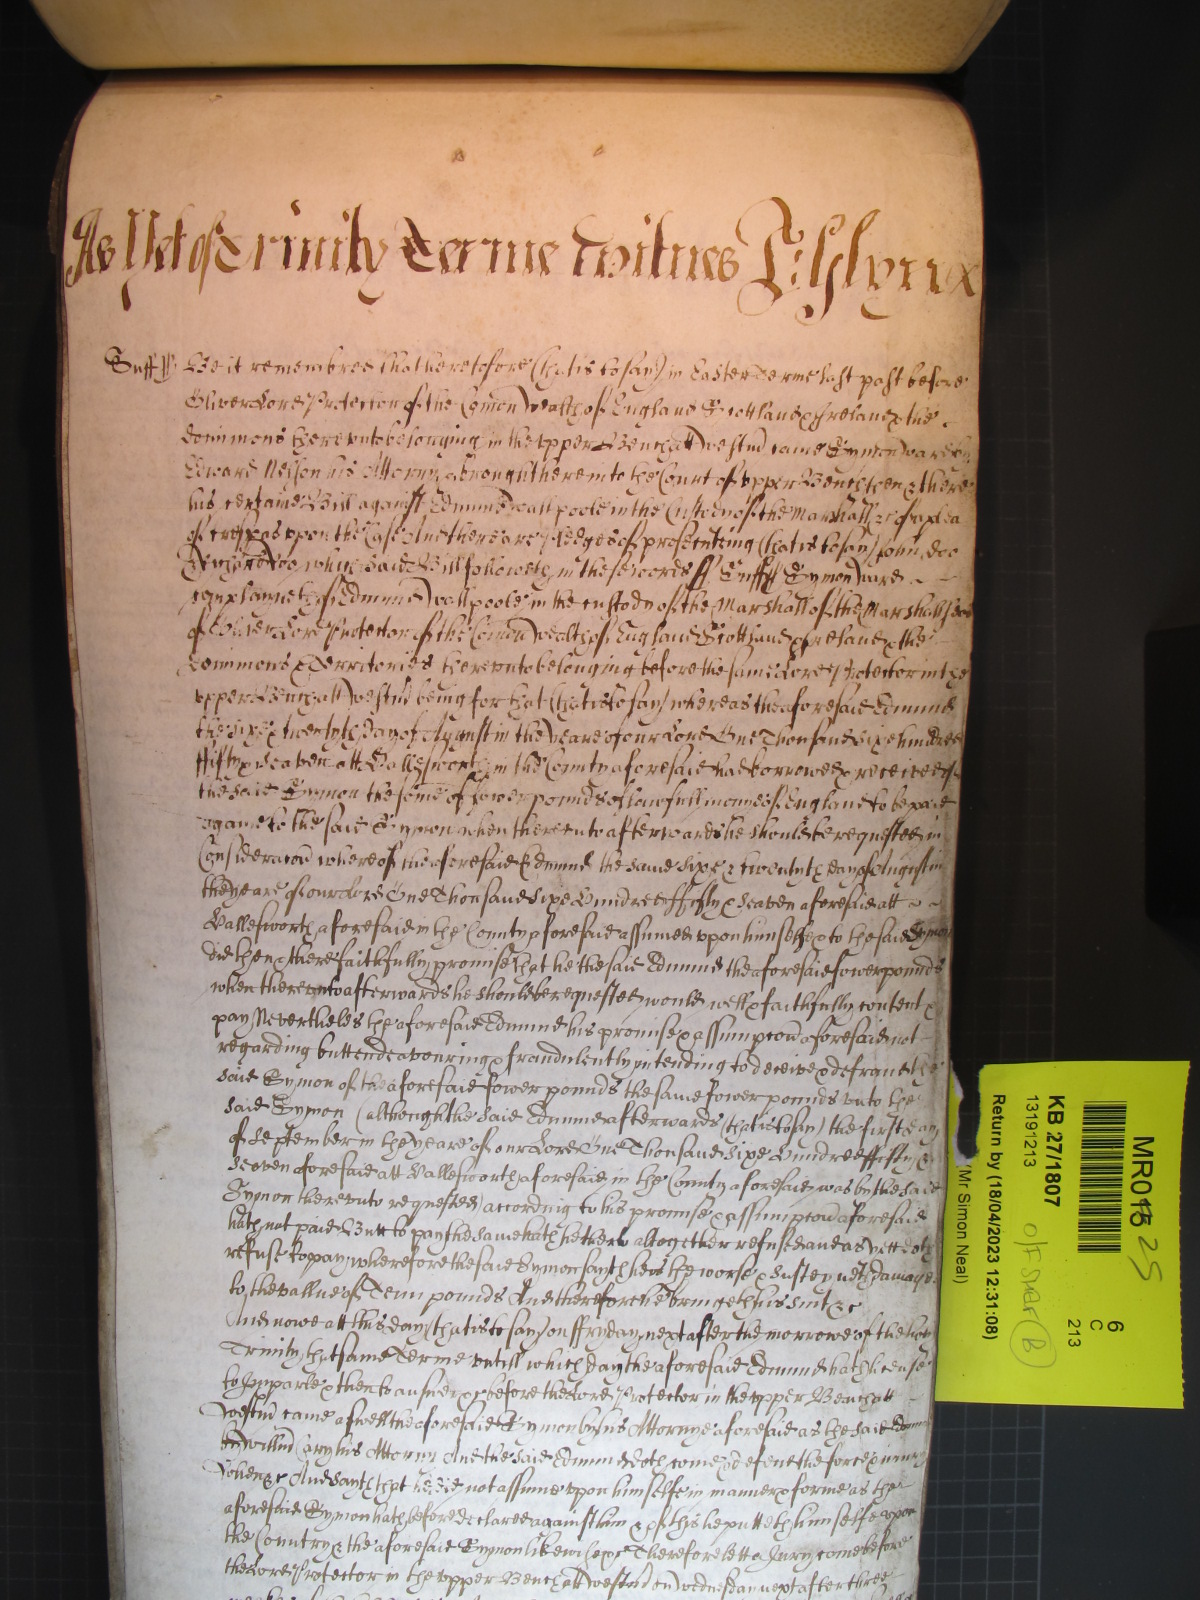 As Yet of Trinity Terme Witnes
Suff ss Be it remembred that heretofore (that is to say) in Easter Terme last past before
Oliver Lord Protector of the Comon wealth of England Scotland & Ireland & the
dominions thereunto belonging in the upper Bench att Westmr came Symon Ware by
Edward Nelson his Attorny & brought here into the Court of upper Bench then & there
his certaine Bill against Edmund Wallpoole in the Custody of the Marshall &c of a plea
of trespas upon the Case And there are pledges of prosecuting (that is to say) John Doo
Richard Roo which said Bill followeth in these words ss Suff ss Symon Ware
complayneth of Edmund Wallpoole in the custody of the Marshall of the Marshallsea
of Oliver Lord Protector of the Comon wealth of England Scotland & Ireland & the
dominions & Territories thereunto belonging before the same Lord Protector in the
upper Bench att Westmr being for that (that is to say) whereas the aforesaid Edmund
the sixe & twentyth day of August in the yeare of our Lord One Thousand sixe hundred
ffifty & seaven att Hallesworth in the County aforesaid had borrowed & received of
the said Symon the some of fower pounds of lawfull money of England to be paid
againe to the said Symon when thereunto afterwards he should be requested in
Consideracon whereof the aforesaid Edmund the same sixe & twentyth day of August in
the yeare of our Lord One Thousand sixe Hundred ffifty & seaven aforesaid att
Hallesworth aforesaid in the County aforesaid assumed upon himselfe & to the said Symon
did then & there faithfully promise that he the said Edmund the aforesaid fower pounds
when thereunto afterwards he should be requested would well & faithfully content &
pay Nevertheles the aforesaid Edmund his promise & assumpcon aforesaid not
regarding butt endeavouring & fraudulently intending to deceive & defraud the
said Symon of the aforesaid fower pounds the same fower pounds unto the
said Symon (although the said Edmund afterwards (that is to say) the first day
of September in the yeare of our Lord One Thousand sixe Hundred ffifty &
seaven aforesaid att Hallesworth aforesaid in the County aforesaid was by the said
Symon thereunto requested) according to his promise & assumpcon aforesaid
hath not paid Butt to pay the same hath hetherto altogether refused and as yett doth
refuse to pay wherefore the said Symon sayth hee is the worse & susteyneth damage
to the vallue of Tenn pounds And therefore he bringeth his suit &c
And nowe att this day (that is to say) on ffryday next after the morrowe of the holy
Trinity that same Terme untill which day the aforesaid Edmund hath license
to Imparle & then to answer &c before the Lord Protector in the upper Bench att
Westmr came aswell the aforesaid Symon by his Attorny aforesaid as the said Edmund
by his Attorny And the said Edmund doth come & defend the force & injury
when &c And sayth that he did not assume upon himselfe in manner & forme as the
aforesaid Symon hath before declared against him & of this he putteth himselfe upon
the Country & the aforesaid Symon likewise &c Therefore lett a Jury come before
the Lord Protector in the upper Bench att Westmr on Wednesday next after three
MR018 25
6
C
213
KB 27/1807
13191213
Return by (18/04/2023 12:31:08)
(Mr Simon Neal)